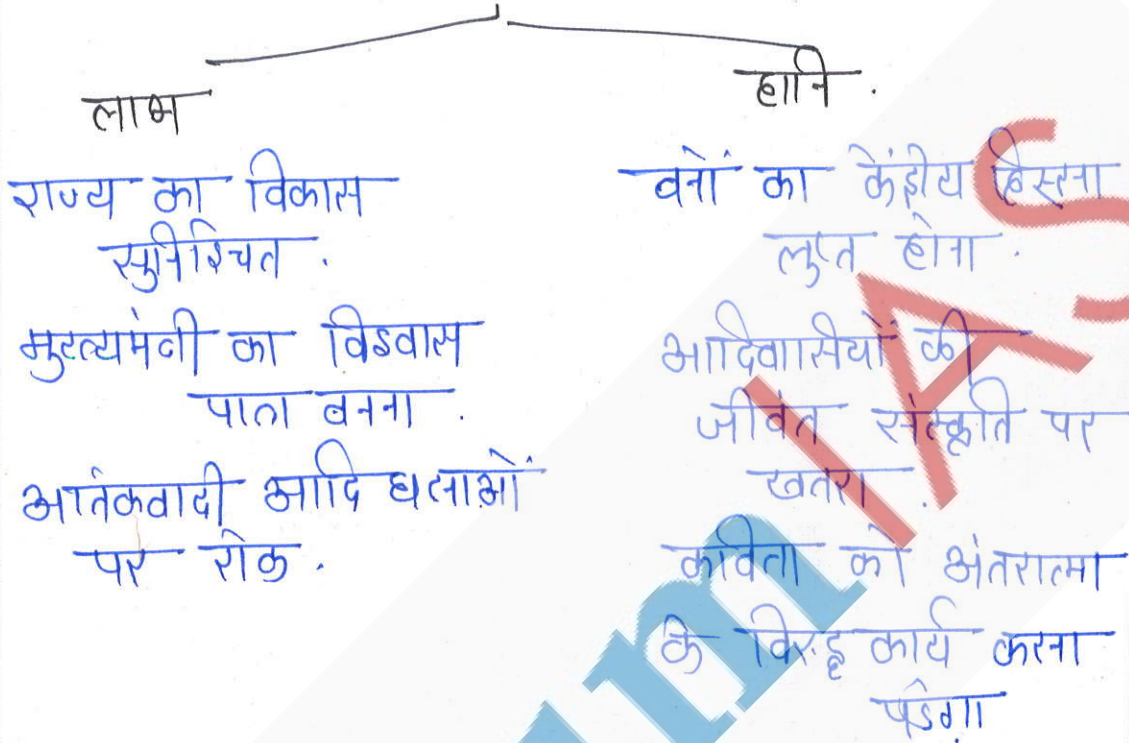 लाभ
राज्य का विकास
सुनिश्चित .
मुख्यमंत्री का विश्वास
पात्र बनना .
आतंकवादी आदि घटनाओं
पर रोक .
हानि .
वनों का केंद्रीय हिस्सा
लुप्त होना .
आदिवासियों की
जीवंत संस्कृति पर
खतरा .
कविता को अंतरात्मा
के विरुद्ध कार्य करना
पडेगा
IAS